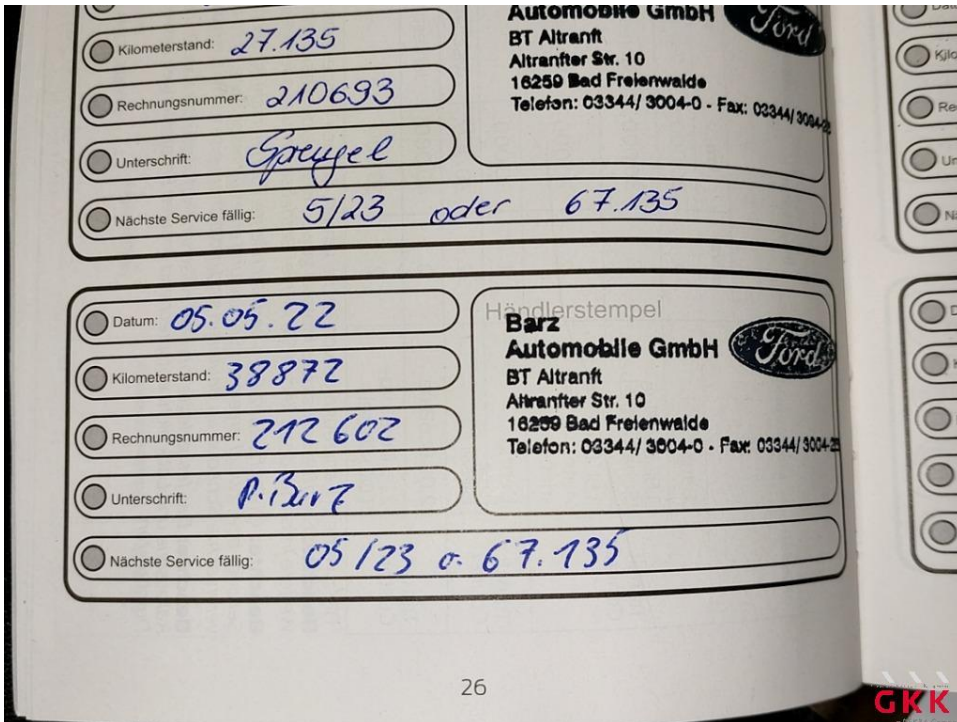 Kilometerstand: 27.135
Rechnungsnummer: 210693
Unterschrift: Sprengel
Nächste Service fällig: 5/23 oder 67.135
Automobile GmbH
Ford
BT Altranft
Altranfter Str. 10
16259 Bad Freienwalde
Telefon: 03344/ 3004-0 - Fax: 03344/ 3004-28
Datum: 05.05.22
Kilometerstand: 38872
Rechnungsnummer: 212602
Unterschrift: P. Barz
Nächste Service fällig: 05/23 o. 67.135
Händlerstempel
Barz
Automobile GmbH
Ford
BT Altranft
Altranfter Str. 10
16259 Bad Freienwalde
Telefon: 03344/ 3004-0 - Fax: 03344/ 3004-28
26
GKK